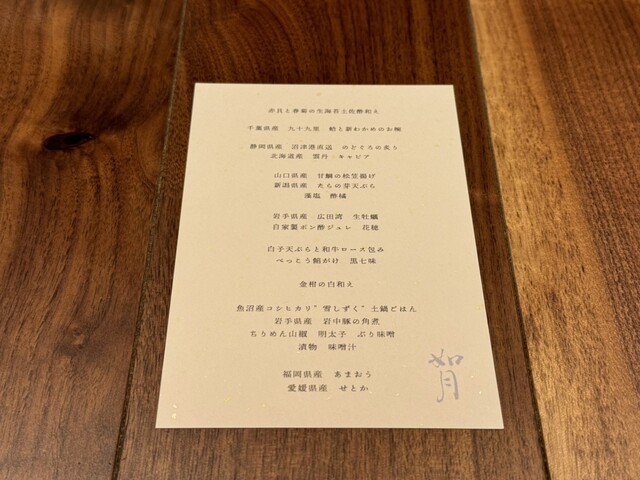 赤貝と春菊の生海苔土佐酢和え
千葉県産　九十九里　蛤と新わかめのお椀
静岡県産　沼津港直送　のどぐろの炙り
北海道産　雲丹　キャビア
山口県産　甘鯛の松笠揚げ
新潟県産　たらの芽天ぷら
藻塩　酢橘
岩手県産　広田湾　生牡蠣
自家製ポン酢ジュレ　花穂
白子天ぷらと和牛ロース包み
べっこう餡がけ　黒七味
金柑の白和え
魚沼産コシヒカリ"雪しずく"土鍋ごはん
岩手県産　岩中豚の角煮
ちりめん山椒　明太子　ぶり味噌
漬物　味噌汁
福岡県産　あまおう
愛媛県産　せとか
如月